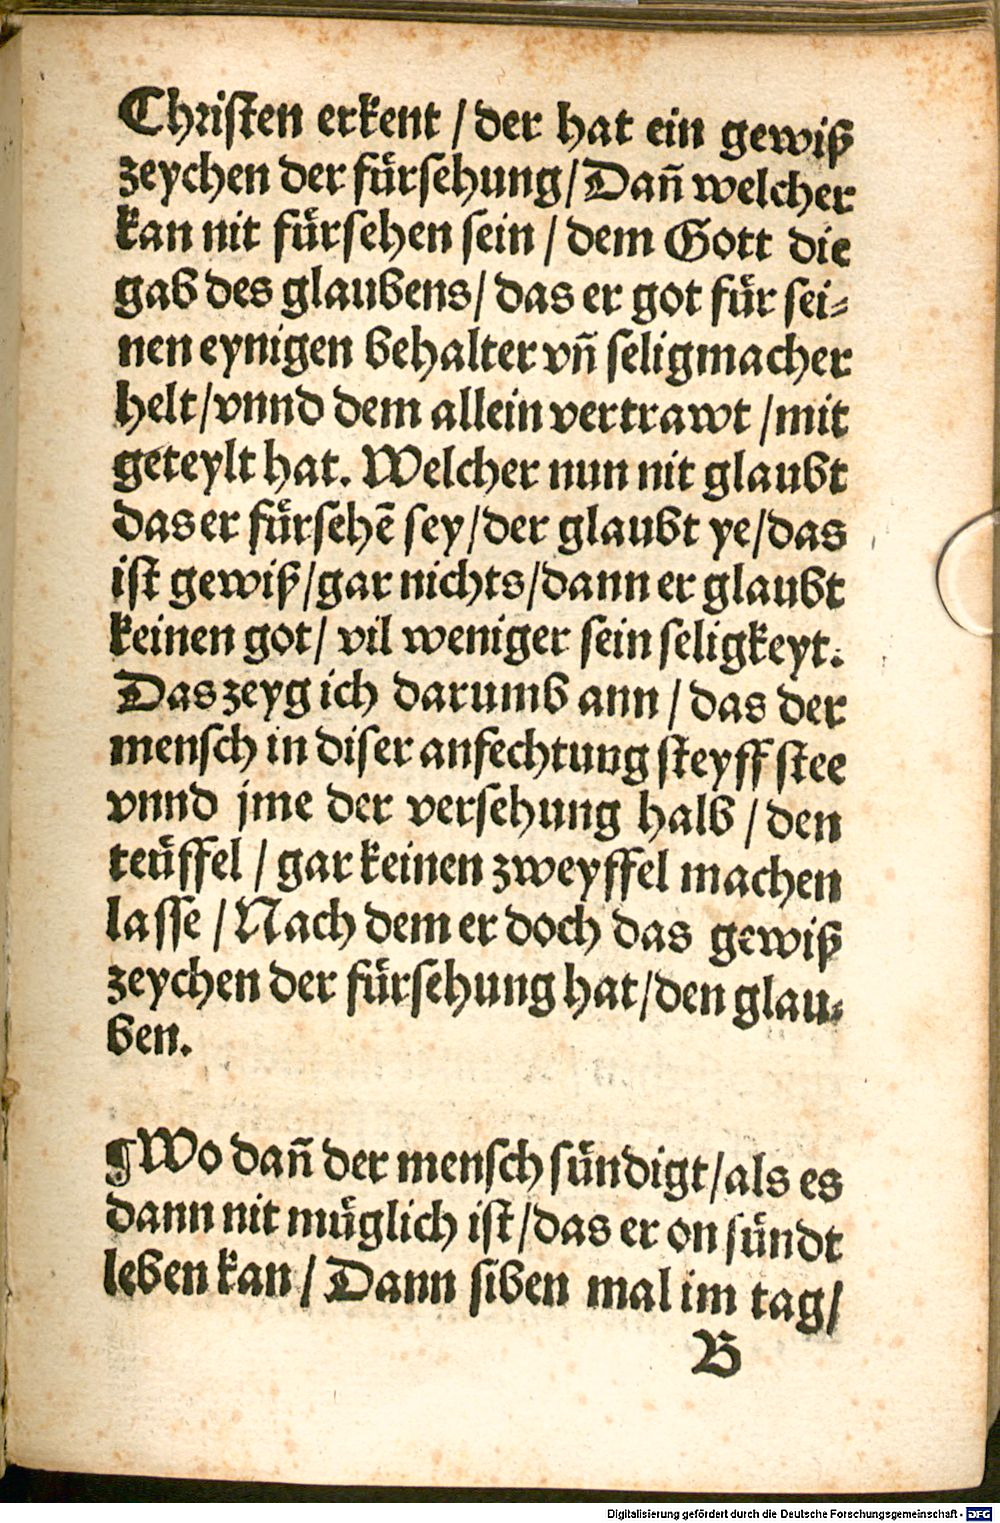 Christen erkent / der hat ein gewiß
zeychen der fuͤrsehung / Dañ welcher
kan nit fuͤrsehen sein / dem Gott die
gab des glaubens / das er got fuͤr sei⸗
nen eynigen behalter vñ seligmacher
helt / vnnd dem allein vertrawt / mit
geteylt hat. Welcher nun nit glaubt
das er fuͤrsehē sey / der glaubt ye / das
ist gewiß / gar nichts / dann er glaubt
keinen got / vil weniger sein seligkeyt.
Das zeyg ich darumb ann / das der
mensch in diser anfechtung steyff stee
vnnd jme der versehung halb / den
teüffel / gar keinen zweyffel machen
lasse / Nach dem er doch das gewiß
zeychen der fuͤrsehung hat / den glau⸗
ben.
¶ Wo dañ der mensch sündigt / als es
dann nit müglich ist / das er on sündt
leben kan / Dann siben mal im tag /
B
Digitalisierung gefördert durch die Deutsche Forschungsgemeinschaft - DFG